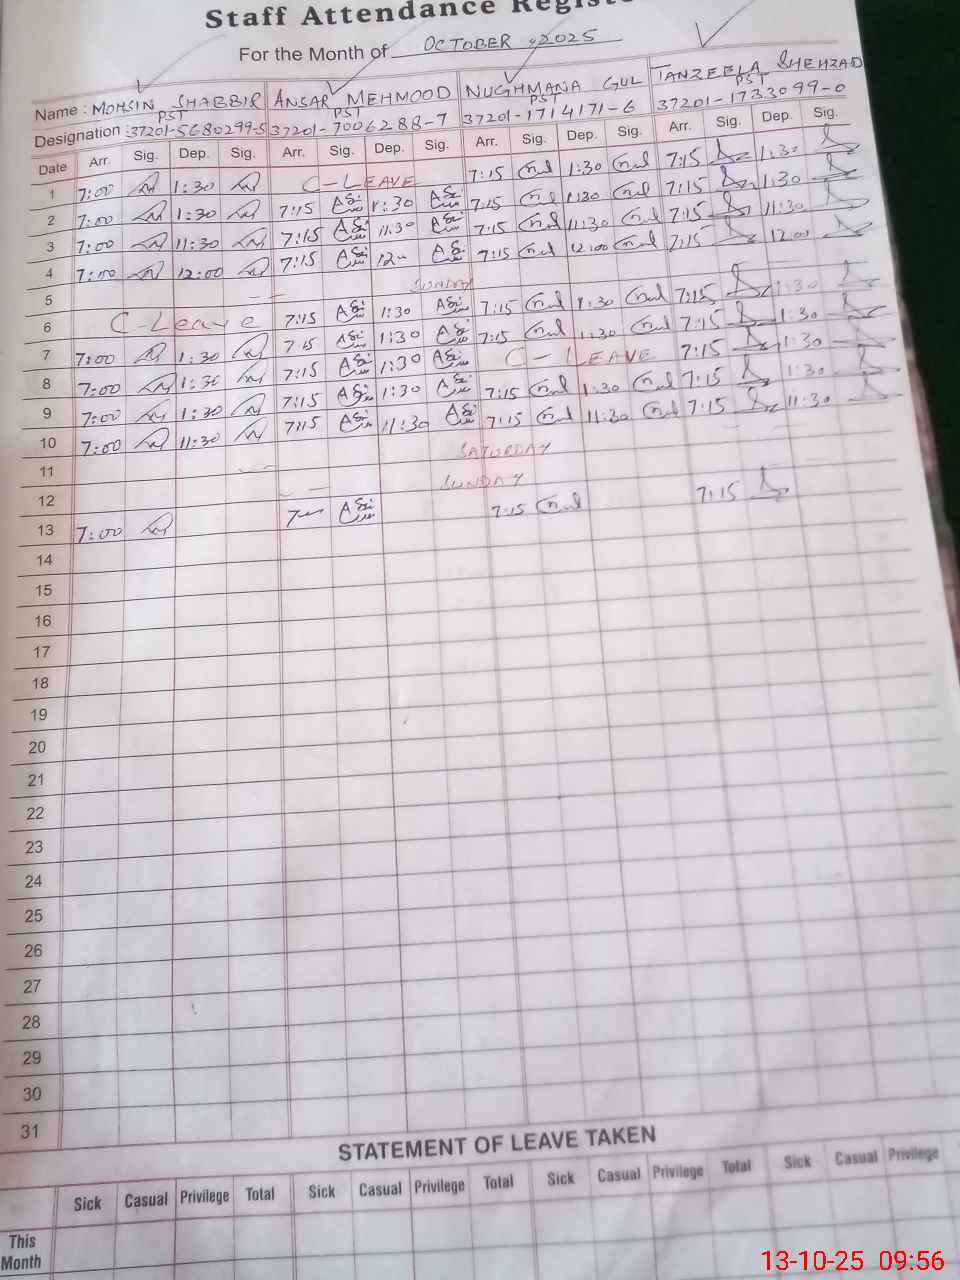 Staff Attendance Registe
For the Month of OCTOBER, 2025
Name : MOHSIN SHABBIR ANSAR MEHMOOD NUGHMANA GUL TANZEELA SHEHZAD
PST PST PST PST
Designation : 37201-5680299-5 37201-7006288-7 37201-1714171-6 37201-1733099-0
Date Arr. Sig. Dep. Sig. Arr. Sig. Dep. Sig. Arr. Sig. Dep. Sig. Arr. Sig. Dep. Sig.
1 7:00 1:30 C-LEAVE 7:15 Gul 1:30 Gul 7:15 1:30
2 7:00 1:30 7:15 1:30 7:15 Gul 1:30 Gul 7:15 1:30
3 7:00 11:30 7:15 11:30 7:15 Gul 11:30 Gul 7:15 11:30
4 7:00 12:00 7:15 12 7:15 Gul 12:00 Gul 7:15 12:00
5 SUNDAY
6 C-Leave 7:15 1:30 7:15 Gul 1:30 Gul 7:15 1:30
7 7:00 1:30 7:15 1:30 7:15 Gul 1:30 Gul 7:15 1:30
8 7:00 1:30 7:15 1:30 C-LEAVE 7:15 1:30
9 7:00 1:30 7:15 1:30 7:15 Gul 1:30 Gul 7:15 1:30
10 7:00 11:30 7:15 11:30 7:15 Gul 11:30 Gul 7:15 11:30
11 SATURDAY
12 SUNDAY
13 7:00 7:15 Gul 7:15
14
15
16
17
18
19
20
21
22
23
24
25
26
27
28
29
30
31
STATEMENT OF LEAVE TAKEN
Sick Casual Privilege Total Sick Casual Privilege Total Sick Casual Privilege Total Sick Casual Privilege
This
Month
13-10-25 09:56